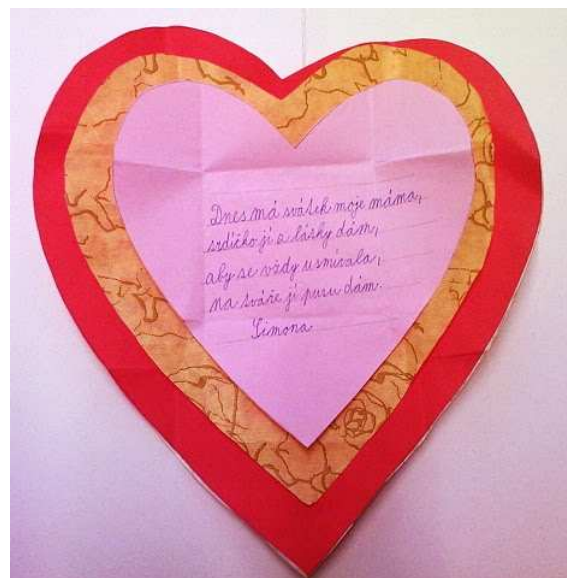 Dnes má svátek moje máma,
srdíčko jí z lásky dám,
aby se vždy usmívala,
na tváře jí pusu dám.
Simona